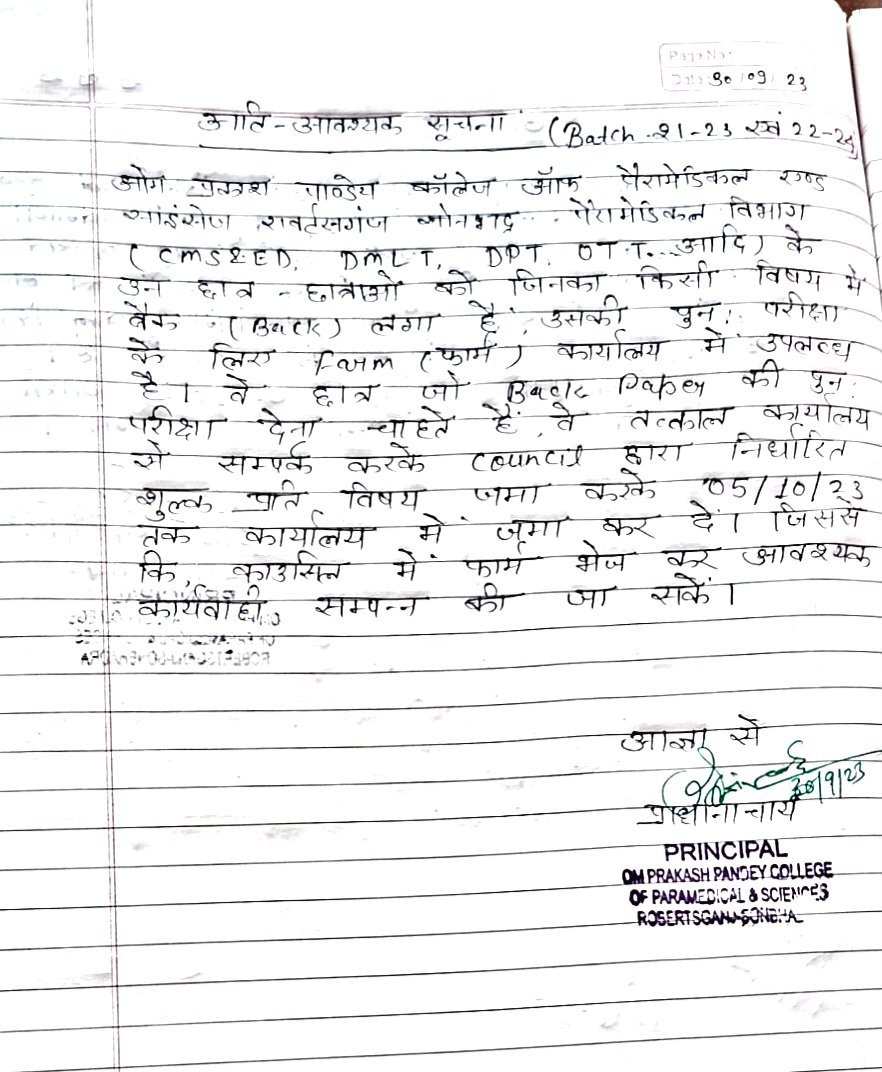 Page No:
Date 30/09/23
अति-आवश्यक सूचना :- (Batch 21-23 एवं 22-24)
ओम प्रकाश पाण्डेय कॉलेज ऑफ पैरामेडिकल एण्ड
साइंसेज रावर्टसगंज सोनभद्र . पैरामेडिकल विभाग
(CMS&ED, DMLT, DPT, OTT... आदि) के
उन छात्र - छात्राओ को जिनका किसी विषय में
बैक (Back) लगा है, उसकी पुन: परीक्षा
के लिए Form (फार्म) कार्यालय में उपलब्ध
है। वे छात्र जो Back Paper की पुन:
परीक्षा देना चाहते है, वे तत्काल कार्यालय
से सम्पर्क करके council द्वारा निर्धारित
शुल्क प्रति विषय जमा करके 05/10/23
तक कार्यालय में जमा कर दें। जिससे
कि, काउंसिल में फार्म भेज कर आवश्यक
कार्यवाही सम्पन्न की जा सकें।
आज्ञा से
30/9/23
प्रधानाचार्य
PRINCIPAL
OM PRAKASH PANDEY COLLEGE
OF PARAMEDICAL & SCIENCES
ROBERTSGANJ-SONBHA